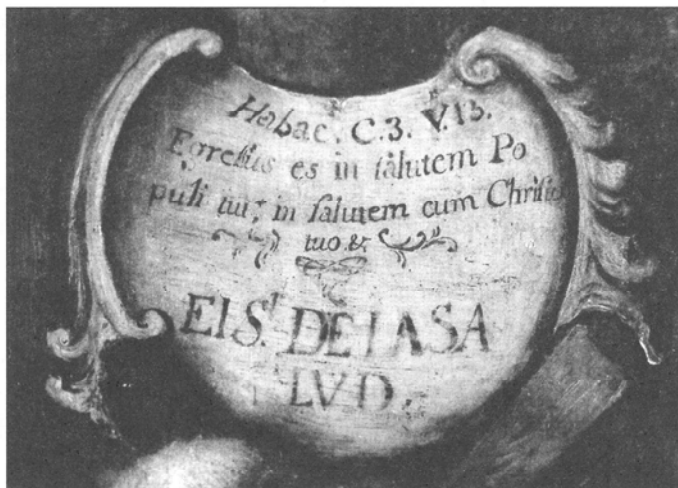 Habac. C.3. V.13.
Egressus es in salutem Po
puli tui; in salutem cum Christo
tuo. &
EL S.r DE LA SA
LVD.